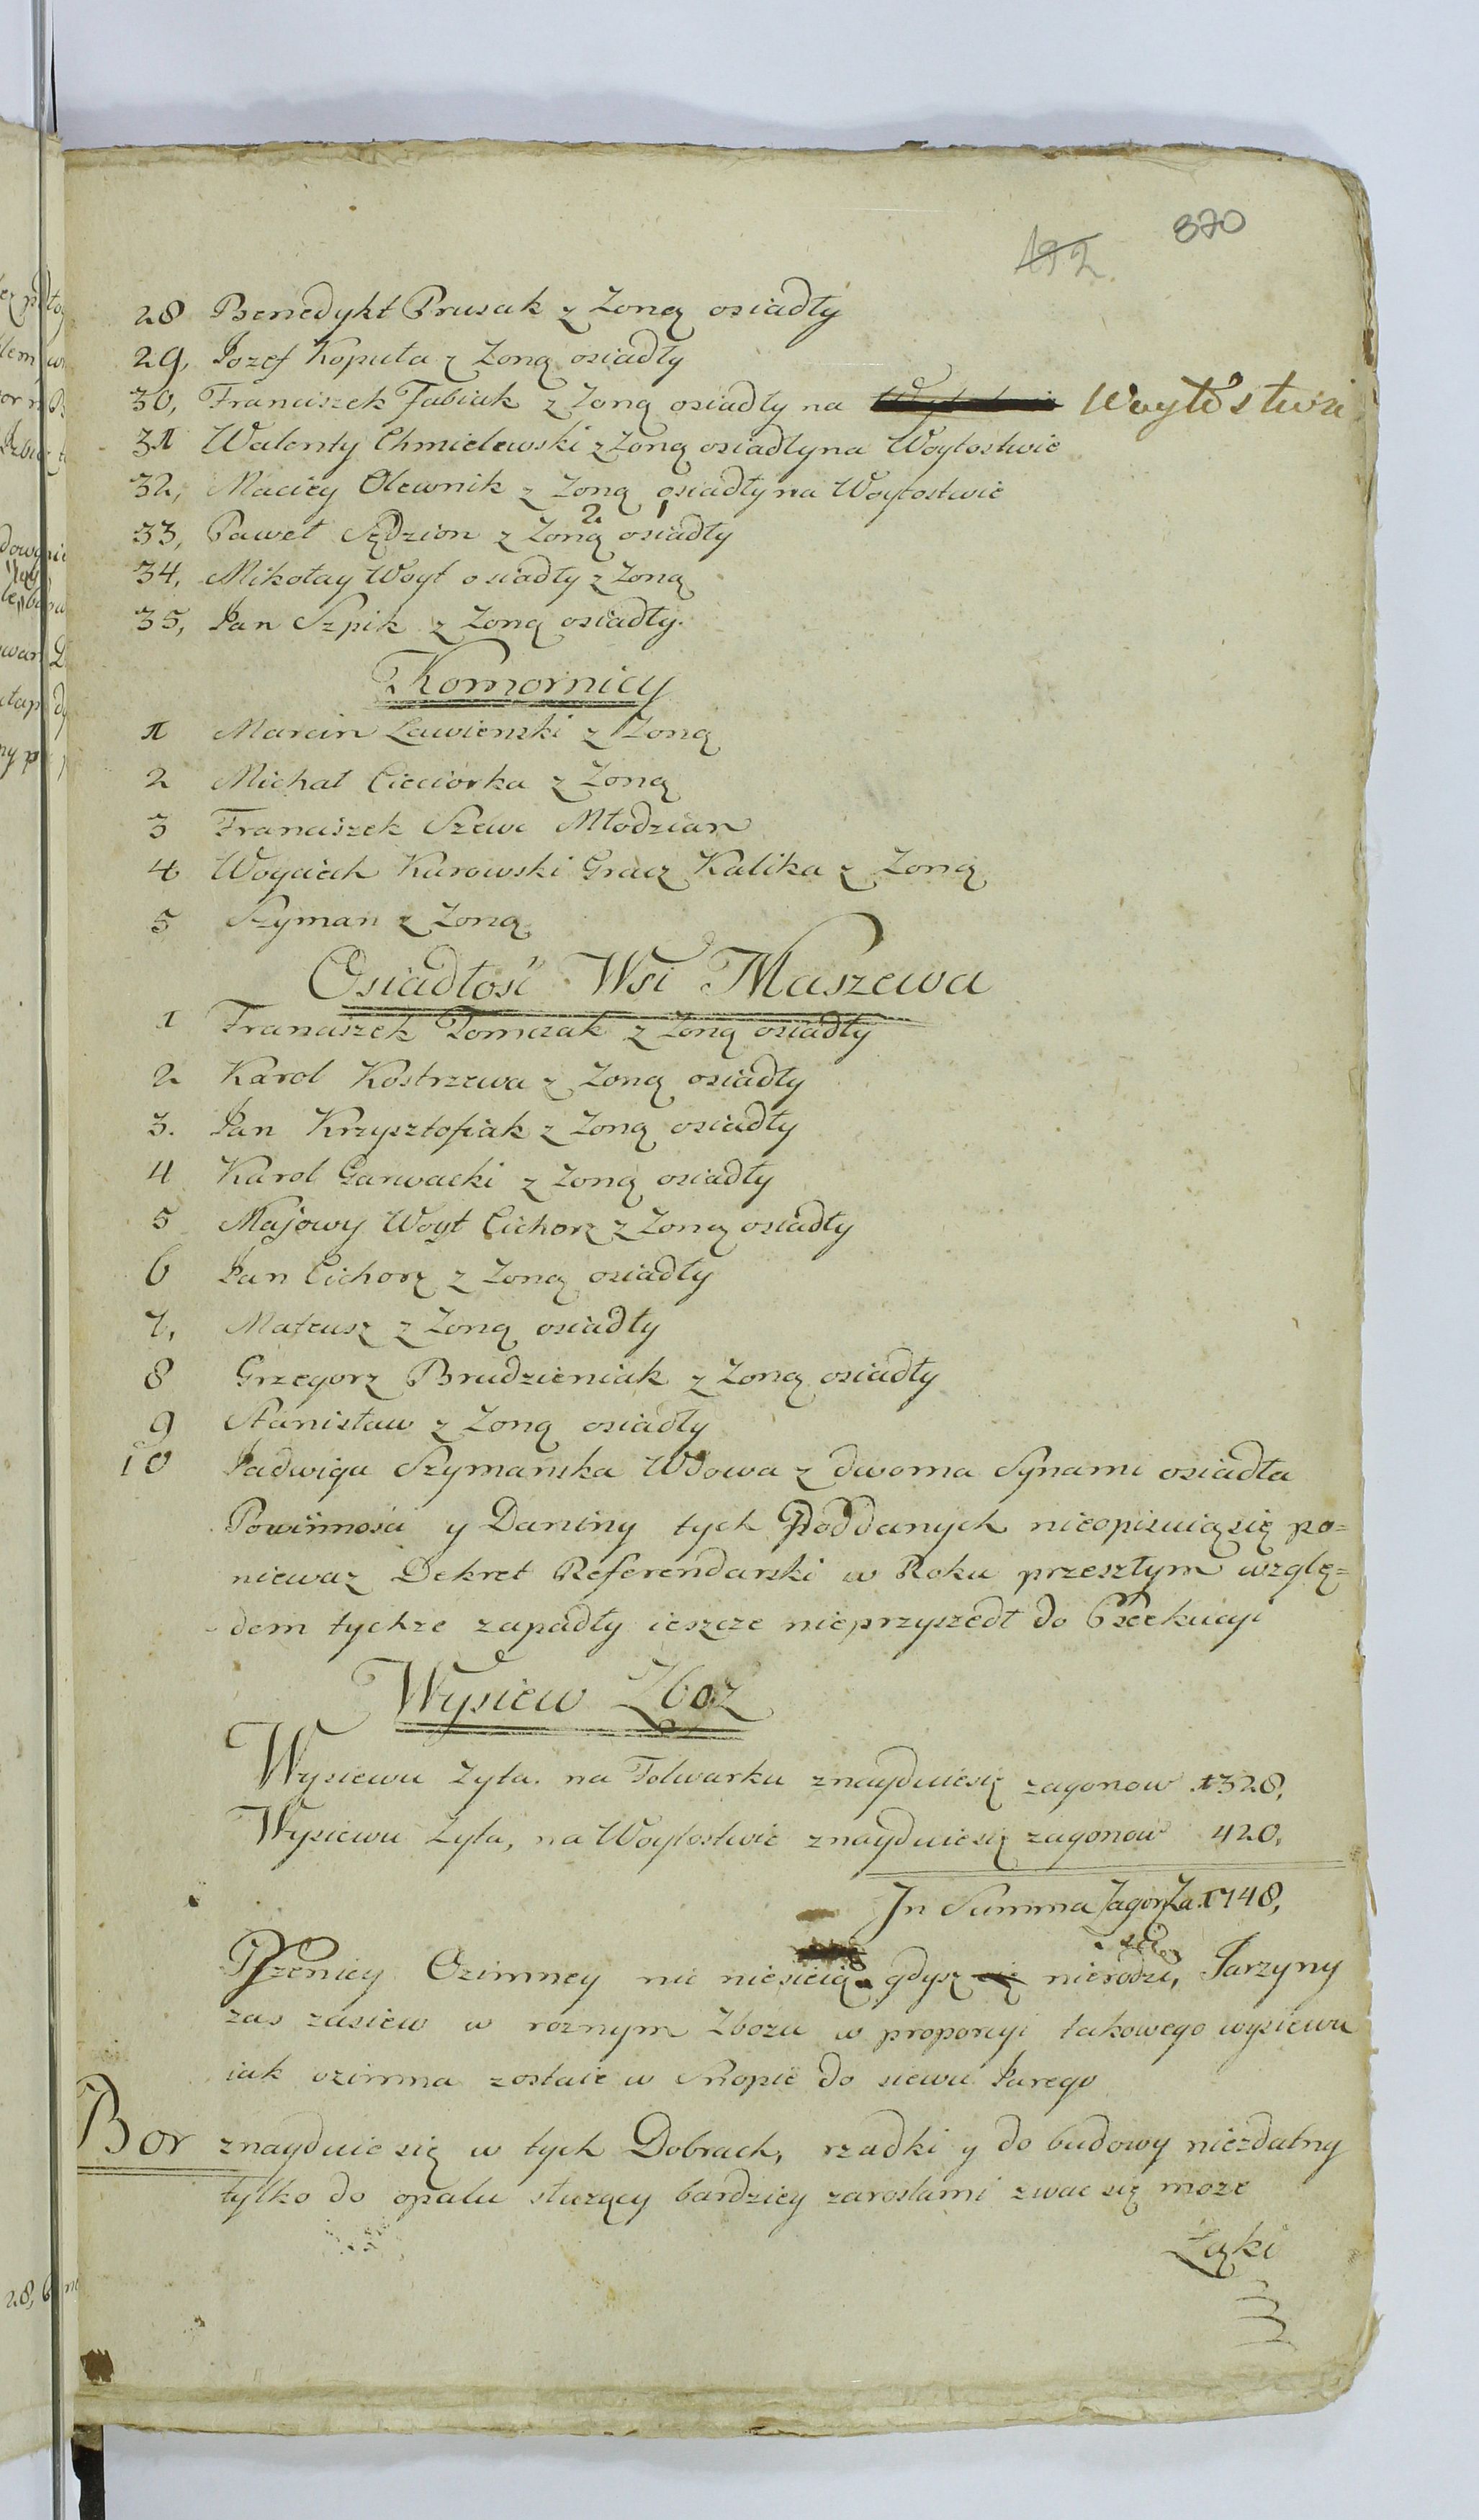 370
192.
28 Benedykt Prusak z Zoną osiadły
29, Jozef Koputa z Zoną osiadły
30, Franciszek Fabiak z Zoną osiadły na Woytostwie
31 Walenty Chmielewski z Zoną osiadły na Woytostwie
32, Maciey Olewnik z Zoną osiadły na Woytostwie
2 1
33, Paweł Sędzion z Zoną osiadły
34, Mikołay Woyt osiadły z Zoną
35, Jan Szpik z Zoną osiadły.
Komornicy
1 Marcin Lawienski z Zoną
2 Michał Cieciorka z Zoną
3 Franciszek Szewc Młodzian
4 Woyciech Karowski Gracz Kalika z Zoną
5 Szyman z Zoną
Osiadłość Wsi Maszewa
1 Franciszek Tomczak z Zoną osiadły
2 Karol Kostrzewa z Zoną osiadły
3. Jan Krzysztofiak z Zoną osiadły
4 Karol Garwacki z Zoną osiadły
5 Majowy Woyt Cichorz z Zoną osiadły
6 Jan Cichorz z Zoną osiadły
7, Mateusz z Zoną osiadły
8 Grzegorz Brudzieniak z Zoną osiadły
9 Stanisław z Zoną osiadły
10 Jadwiga Szymanska Wdowa z dwoma Synami osiadła
Powinnosci y Daniny tych Poddanych nieopisuią się po=
niewaz Dekret Referendarski w Roku przeszłym wzglę=
dem tychze zapadły ieszcze nieprzyszedł do Exekucyi
Wysiew Zboz
Wysiewu Zyta. na Folwarku znayduiesię zagonow 1328,
Wysiewu Zyta, na Woytostwie znayduiesię zagonow 420,
In Summa Zagon: 1748,
Pszenicy Ozimney nie niesieią gdysz się nierodzi, Jarzyny
zas zasiew w roznym Zbozu w proporcyi takowego wysiewu
iak ozimna zostaie w Snopie do siewu Jarego
Bor znayduie się w tych Dobrach, rzadki y do budowy niezdatny
tylko do opału służący bardziey zaroslami zwac się moze
Łąki